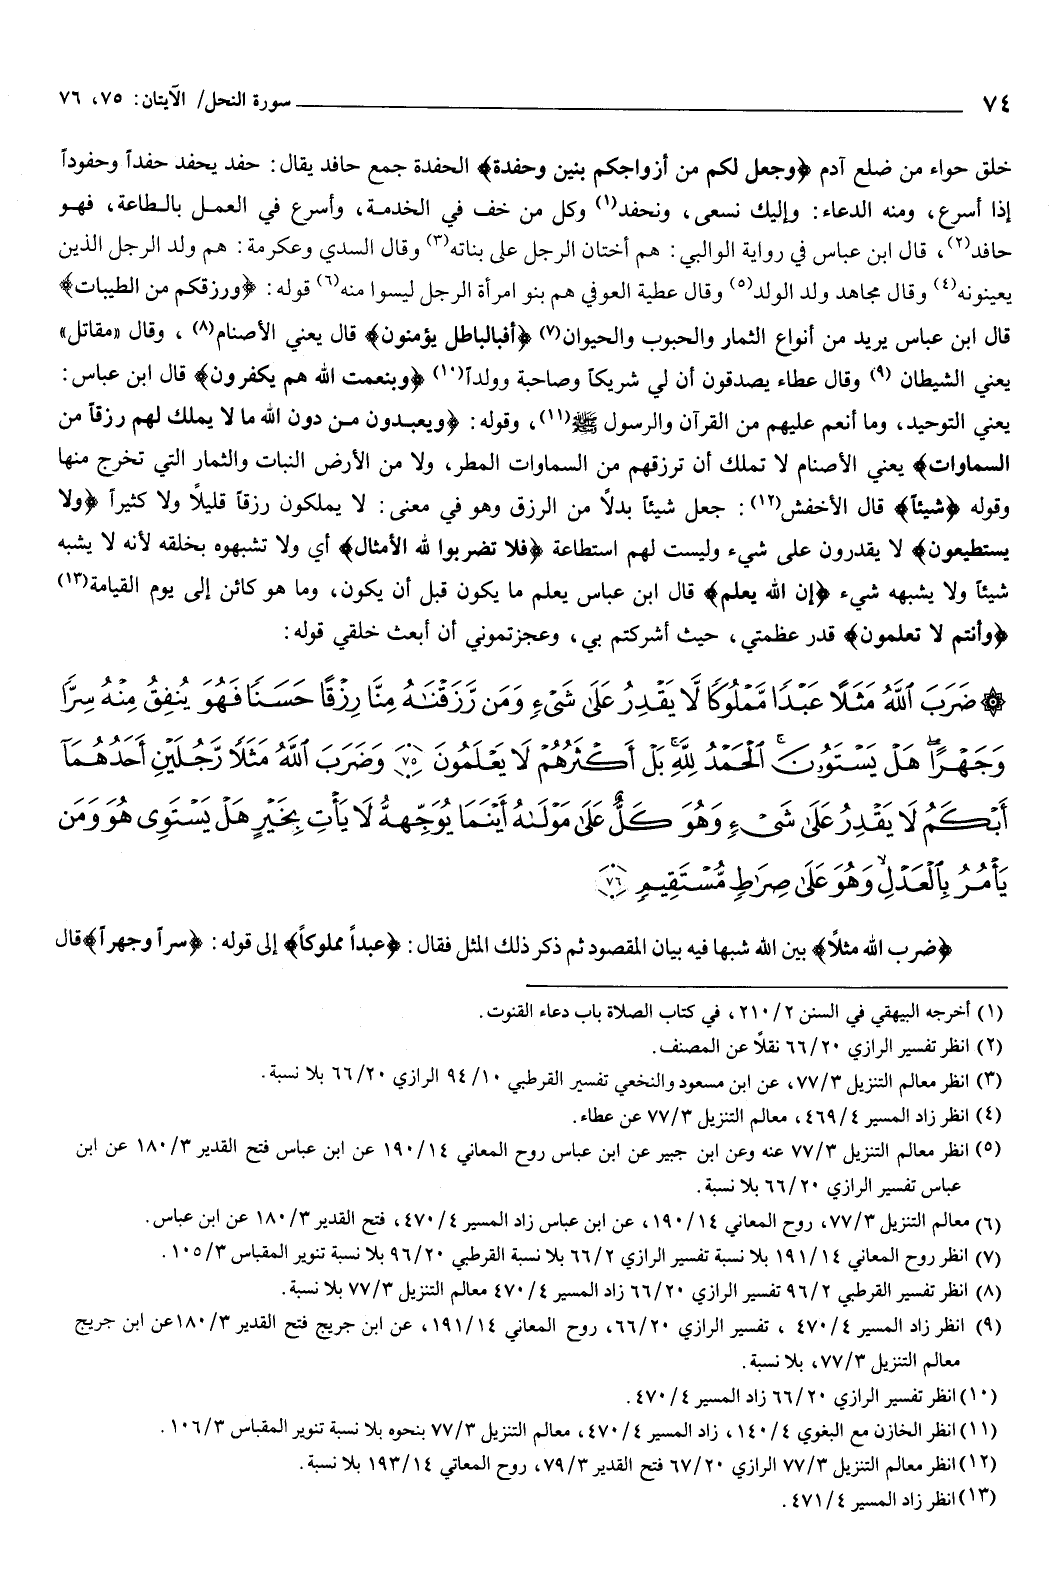 ٧٤ سورة النحل/ الآيتان: ٧٥، ٧٦
خلق حواء من ضلع آدم ﴿وجعل لكم من أزواجكم بنين وحفدة﴾ الحفدة جمع حافد يقال: حفد يحفد حفداً وحفوداً
إذا أسرع، ومنه الدعاء: وإليك نسعى، ونحفد(١) وكل من خف في الخدمة، وأسرع في العمل بالطاعة، فهو
حافد(٢)، قال ابن عباس في رواية الوالبي: هم أختان الرجل على بناته(٣) وقال السدي وعكرمة: هم ولد الرجل الذين
يعينونه(٤) وقال مجاهد ولد الولد(٥) وقال عطية العوفي هم بنو امرأة الرجل ليسوا منه(٦) قوله: ﴿ورزقكم من الطيبات﴾
قال ابن عباس يريد من أنواع الثمار والحبوب والحيوان(٧) ﴿أفبالباطل يؤمنون﴾ قال يعني الأصنام(٨) ، وقال «مقاتل»
يعني الشيطان (٩) وقال عطاء يصدقون أن لي شريكاً وصاحبة وولداً(١٠) ﴿وبنعمت الله هم يكفرون﴾ قال ابن عباس:
يعني التوحيد، وما أنعم عليهم من القرآن والرسول ﷺ(١١)، وقوله: ﴿ويعبدون من دون الله ما لا يملك لهم رزقاً من
السماوات﴾ يعني الأصنام لا تملك أن ترزقهم من السماوات المطر، ولا من الأرض النبات والثمار التي تخرج منها
وقوله ﴿شيئاً﴾ قال الأخفش(١٢): جعل شيئاً بدلاً من الرزق وهو في معنى: لا يملكون رزقاً قليلاً ولا كثيراً ﴿ولا
يستطيعون﴾ لا يقدرون على شيء وليست لهم استطاعة ﴿فلا تضربوا لله الأمثال﴾ أي ولا تشبهوه بخلقه لأنه لا يشبه
شيئاً ولا يشبهه شيء ﴿إن الله يعلم﴾ قال ابن عباس يعلم ما يكون قبل أن يكون، وما هو كائن إلى يوم القيامة(١٣)
﴿وأنتم لا تعلمون﴾ قدر عظمتي، حيث أشركتم بي، وعجزتموني أن أبعث خلقي قوله:
۞ ضَرَبَ ٱللَّهُ مَثَلًا عَبْدًا مَّمْلُوكًا لَّا يَقْدِرُ عَلَىٰ شَىْءٍ وَمَن رَّزَقْنَـٰهُ مِنَّا رِزْقًا حَسَنًا فَهُوَ يُنفِقُ مِنْهُ سِرًّا
وَجَهْرًا ۖ هَلْ يَسْتَوُۥنَ ۚ ٱلْحَمْدُ لِلَّهِ ۚ بَلْ أَكْثَرُهُمْ لَا يَعْلَمُونَ ﴿٧٥﴾ وَضَرَبَ ٱللَّهُ مَثَلًا رَّجُلَيْنِ أَحَدُهُمَآ
أَبْكَمُ لَا يَقْدِرُ عَلَىٰ شَىْءٍ وَهُوَ كَلٌّ عَلَىٰ مَوْلَىٰهُ أَيْنَمَا يُوَجِّههُّ لَا يَأْتِ بِخَيْرٍ هَلْ يَسْتَوِى هُوَ وَمَن
يَأْمُرُ بِٱلْعَدْلِ ۙ وَهُوَ عَلَىٰ صِرَٰطٍ مُّسْتَقِيمٍ ﴿٧٦﴾
﴿ضرب الله مثلاً﴾ بين الله شبها فيه بيان المقصود ثم ذكر ذلك المثل فقال: ﴿عبداً مملوكاً﴾ إلى قوله: ﴿سراً وجهراً﴾قال
(١) أخرجه البيهقي في السنن ٢١٠/٢، في كتاب الصلاة باب دعاء القنوت.
(٢) انظر تفسير الرازي ٦٦/٢٠ نقلاً عن المصنف.
(٣) انظر معالم التنزيل ٧٧/٣، عن ابن مسعود والنخعي تفسير القرطبي ٩٤/١٠ الرازي ٦٦/٢٠ بلا نسبة.
(٤) انظر زاد المسير ٤٦٩/٤، معالم التنزيل ٧٧/٣ عن عطاء.
(٥) انظر معالم التنزيل ٧٧/٣ عنه وعن ابن جبير عن ابن عباس روح المعاني ١٩٠/١٤ عن ابن عباس فتح القدير ١٨٠/٣ عن ابن
عباس تفسير الرازي ٦٦/٢٠ بلا نسبة.
(٦) معالم التنزيل ٧٧/٣، روح المعاني ١٩٠/١٤، عن ابن عباس زاد المسير ٤٧٠/٤، فتح القدير ١٨٠/٣ عن ابن عباس.
(٧) انظر روح المعاني ١٩١/١٤ بلا نسبة تفسير الرازي ٦٦/٢ بلا نسبة القرطبي ٩٦/٢٠ بلا نسبة تنوير المقباس ١٠٥/٣.
(٨) انظر تفسير القرطبي ٩٦/٢ تفسير الرازي ٦٦/٢٠ زاد المسير ٤٧٠/٤ معالم التنزيل ٧٧/٣ بلا نسبة.
(٩) انظر زاد المسير ٤٧٠/٤ ، تفسير الرازي ٦٦/٢٠، روح المعاني ١٩١/١٤، عن ابن جريج فتح القدير ١٨٠/٣عن ابن جريج
معالم التنزيل ٧٧/٣، بلا نسبة.
(١٠) انظر تفسير الرازي ٦٦/٢٠ زاد المسير ٤٧٠/٤.
(١١) انظر الخازن مع البغوي ١٤٠/٤، زاد المسير ٤٧٠/٤، معالم التنزيل ٧٧/٣ بنحوه بلا نسبة تنوير المقباس ١٠٦/٣.
(١٢) انظر معالم التنزيل ٧٧/٣ الرازي ٦٧/٢٠ فتح القدير ٧٩/٣، روح المعاتي ١٩٣/١٤ بلا نسبة.
(١٣) انظر زاد المسير ٤٧١/٤.